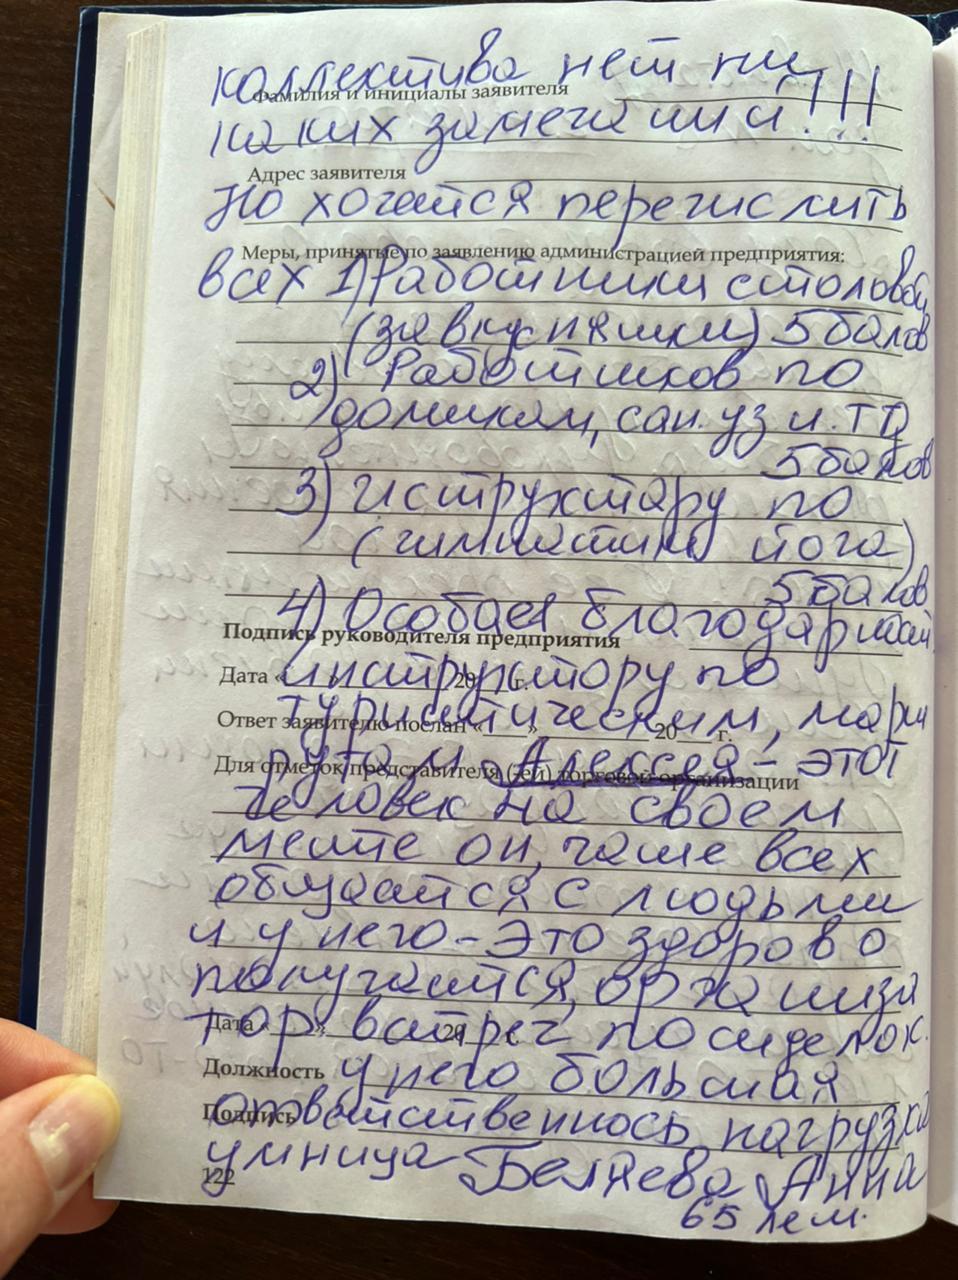 коллектива нет ни
Фамилия и инициалы заявителя
каких замечаний!!!
Адрес заявителя
Но хочется перечислить
Меры, принятые по заявлению администрацией предприятия:
всех 1) Работники столовой
(за вкусняшки) 5балов
2) Работников по
домикам, сан.уз и.тд
5балов
3) иструктору по
(гимнастики йога)
5балов
4) Особая благодарность
Подпись руководителя предприятия
инструктору по
Дата « 20 г.
туристическим, марш
Ответ заявителю послан « » 20 г.
рутам Алексея - этот
Для отметок представителя (-ей) торговой организации
человек на своем
месте он, чаше всех
общается с людьми
и у него - это здорово
получается, организа
тор встреч, посиделок.
Дата « » 20 г.
Должность
у него большая
отвейственнось, нагрузка
Подпись
умница Беляева Анна
122
65 лет.